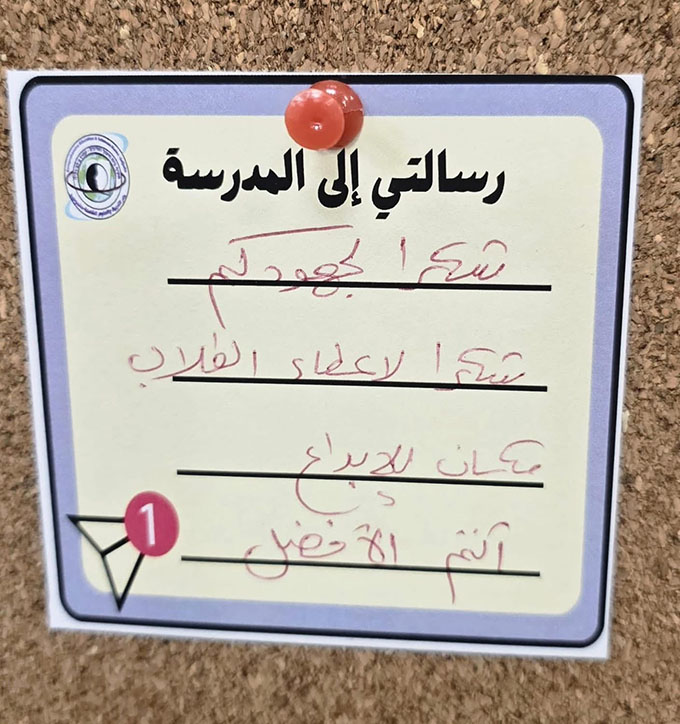 رسالتي إلى المدرسة
شكرا لجهودكم
شكرا لاعطاء الطلاب
مكان للإبداع
أنتم الأفضل
1